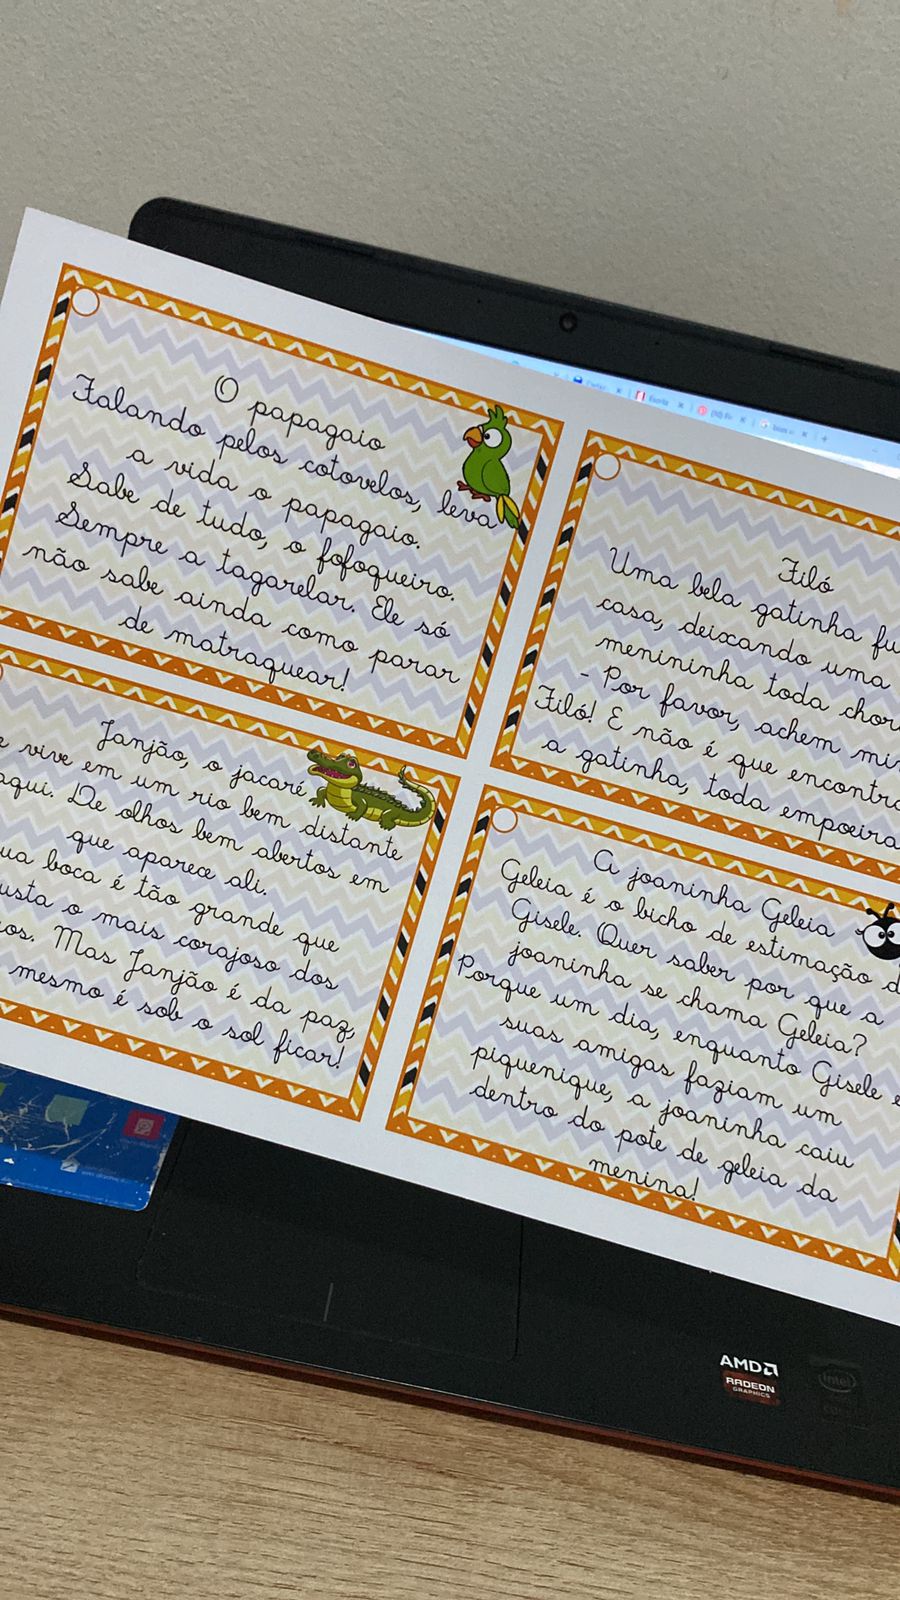 O papagaio
Falando pelos cotovelos, leva
a vida o papagaio.
Sabe de tudo, o fofoqueiro.
Sempre a tagarelar. Ele só
não sabe ainda como parar
de matraquear!
Filó
Uma bela gatinha fu
casa, deixando uma
menininha toda chor
- Por favor, achem mi
Filó! E não é que encontr
a gatinha, toda empoeira
Janjão, o jacaré
e vive em um rio bem distante
aqui. De olhos bem abertos em
que aparece ali.
ua boca é tão grande que
usta o mais corajoso dos
os. Mas Janjão é da paz,
mesmo é sob o sol ficar!
A joaninha Geleia
Geleia é o bicho de estimação d
Gisele. Quer saber por que a
joaninha se chama Geleia?
Porque um dia, enquanto Gisele e
suas amigas faziam um
piquenique, a joaninha caiu
dentro do pote de geleia da
menina!
AMD
RADEON
GRAPHICS
intel